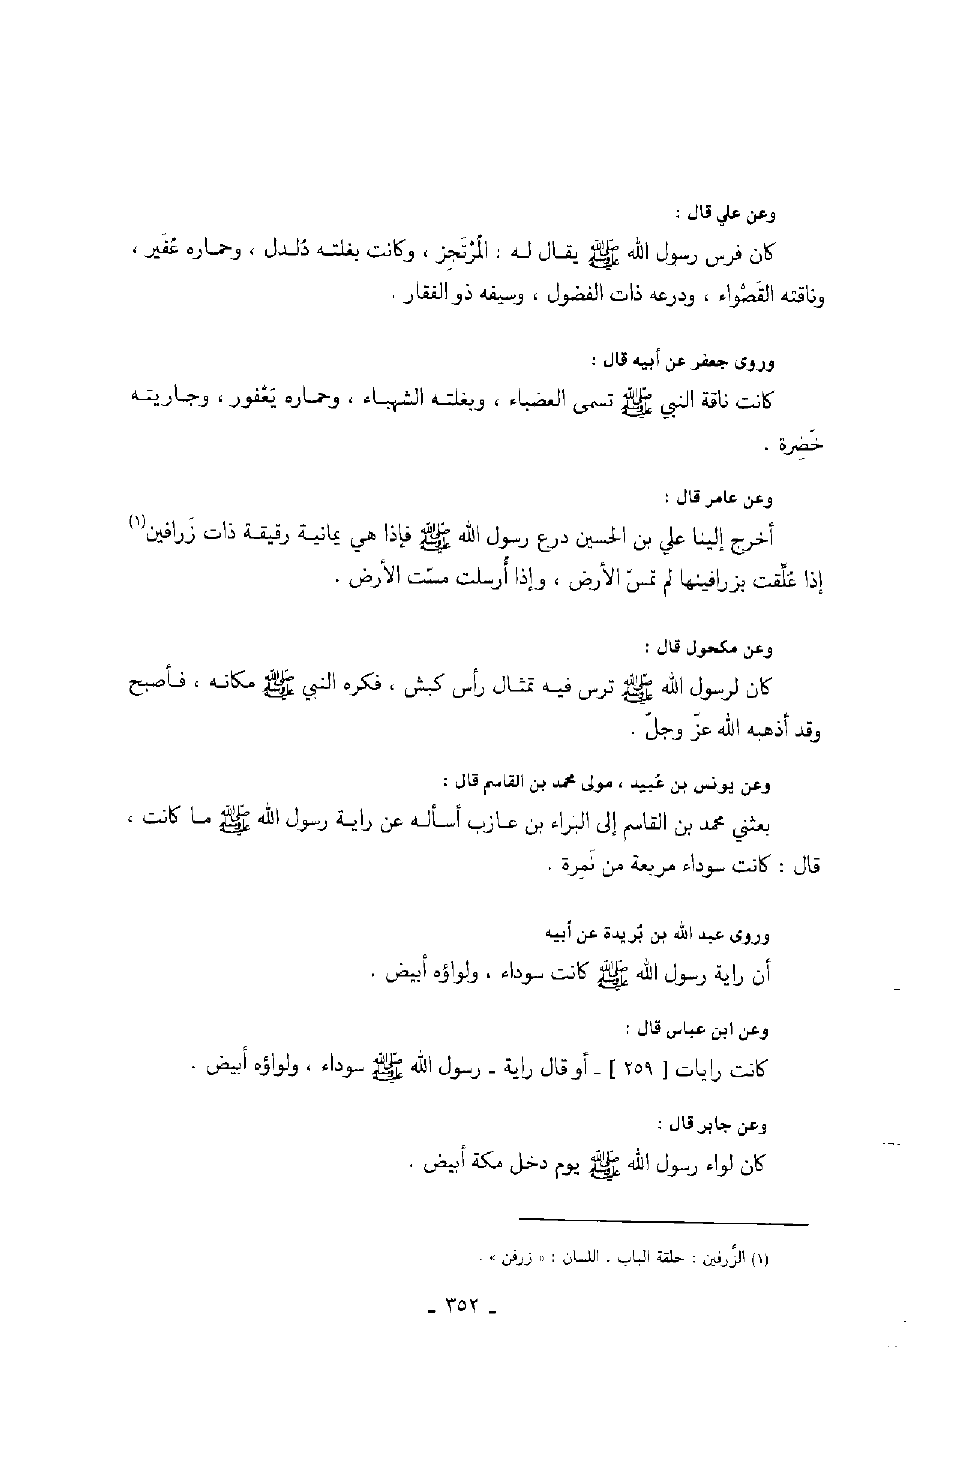 وعن علي قال :
كان فرس رسول الله ﷺ يقال له : المُرْتَجِز ، وكانت بغلته دُلدل ، وحماره عُفَير ،
وناقته القَصْواء ، ودرعه ذات الفضول ، وسيفه ذو الفقار .
وروى جعفر عن أبيه قال :
كانت ناقة النبي ﷺ تسمى العضباء ، وبغلته الشهباء ، وحماره يَعْفور ، وجاريته
خَضِرة .
وعن عامر قال :
أخرج إلينا علي بن الحسين درع رسول الله ﷺ فإذا هي يمانية رقيقة ذات زَرافين(١)
إذا عُلّقت بزرافينها لم تمسّ الأرض ، وإذا أُرسلت مسّت الأرض .
وعن مكحول قال :
كان لرسول الله ﷺ ترس فيه تمثال رأس كبش ، فكره النبي ﷺ مكانه ، فأصبح
وقد أذهبه الله عزّ وجلّ .
وعن يونس بن عُبيد ، مولى محمد بن القاسم قال :
بعثني محمد بن القاسم إلى البراء بن عازب أسأله عن راية رسول الله ﷺ ما كانت ،
قال : كانت سوداء مربعة من نَمِرة .
وروى عبد الله بن بُريدة عن أبيه
أن راية رسول الله ﷺ كانت سوداء ، ولواؤه أبيض .
وعن ابن عباس قال :
كانت رايات [ ٢٥٩ ] ـ أو قال راية ـ رسول الله ﷺ سوداء ، ولواؤه أبيض .
وعن جابر قال :
كان لواء رسول الله ﷺ يوم دخل مكة أبيض .
(١) الزُّرفين : حلقة الباب . اللسان : « زرفن » .
ـ ٣٥٢ ـ